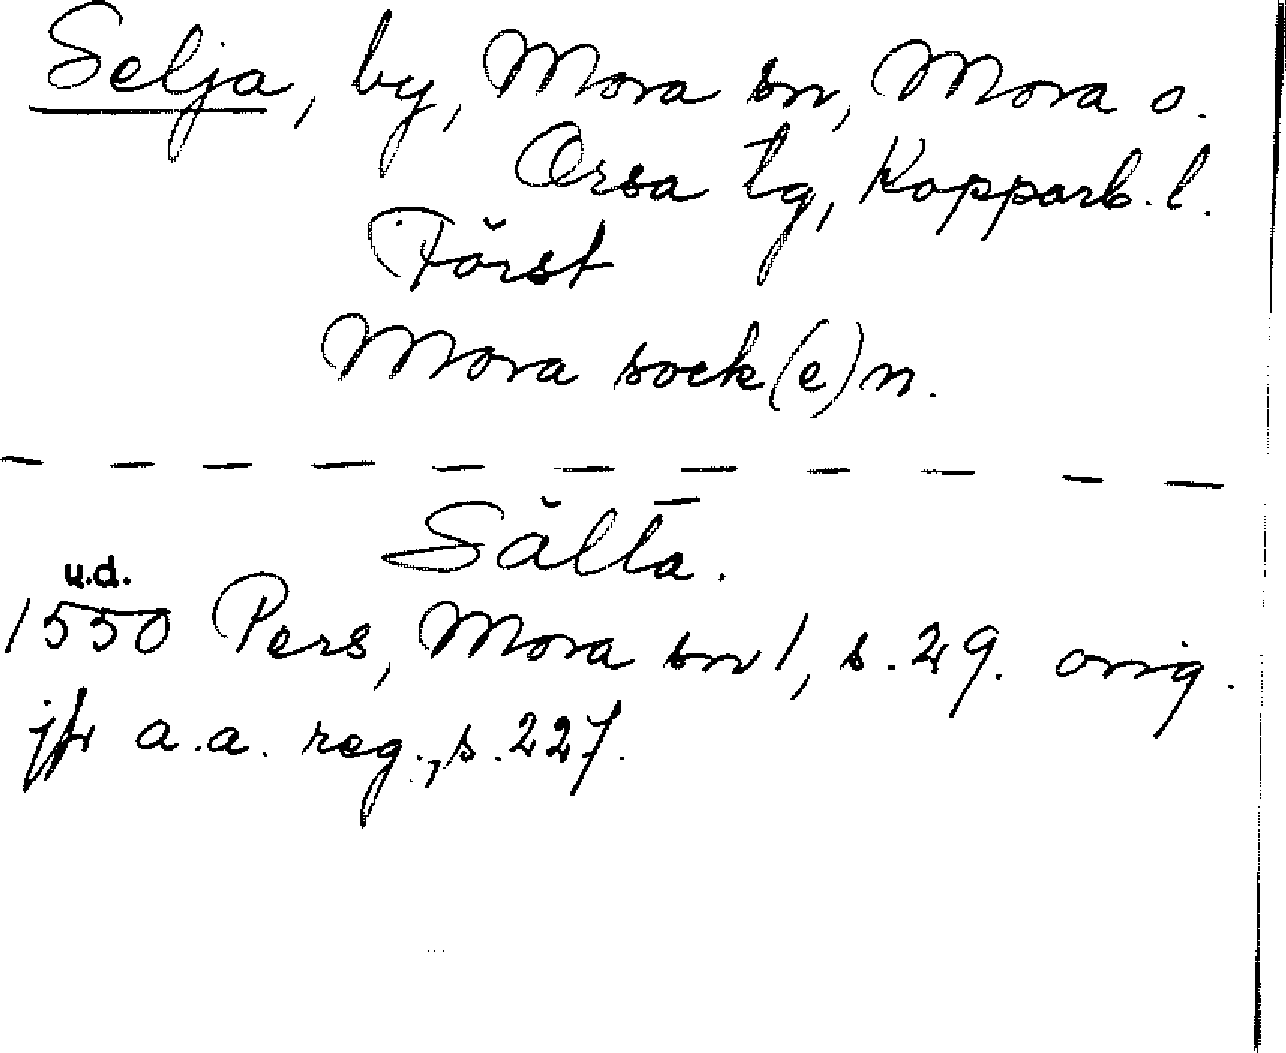 Selja, by, Mora sn, Mora o.
Orsa tg, Kopparb. l.
Först
Mora sock(e)n.
Sălla.
u.d.
1550 Pers, Mora sn 1, s. 29. orig.
jfr a.a. reg., s. 227.